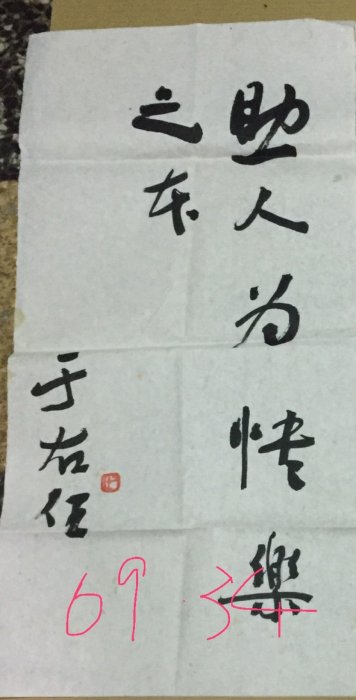 助人为快樂
之本
于右任
69 34